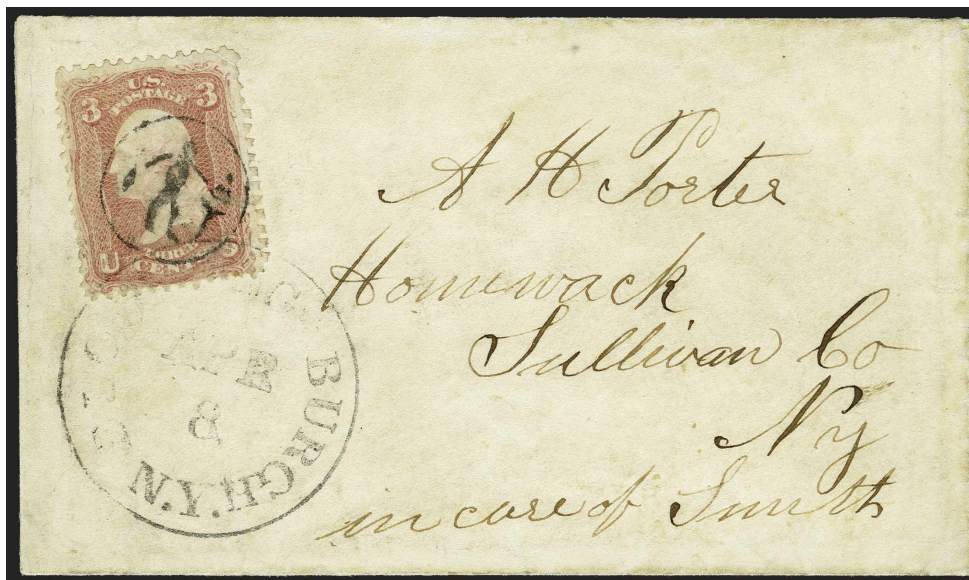 U.S.
POSTAGE
3 3
U
CENT
APR
8
BURGH.N.Y.
A H Porter
Homewack
Sullivan Co
Ny
in care of Smith